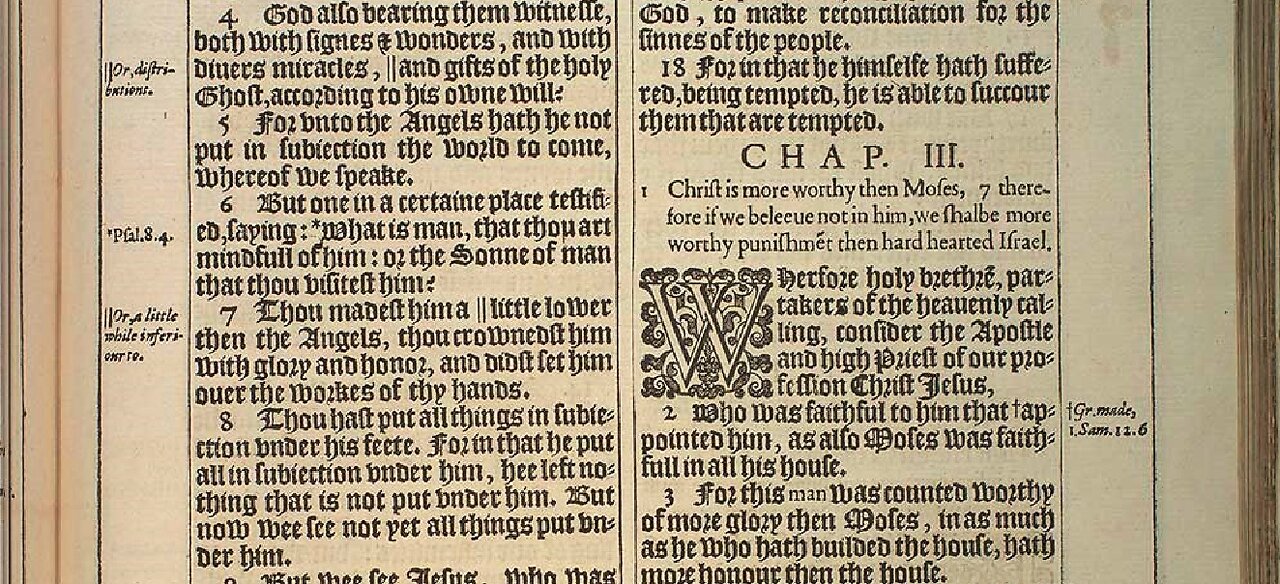 4 God also bearing them witnesse,
both with signes & wonders, and with
||Or, distri-
butions.
diuers miracles, ||and gifts of the holy
Ghost, according to his owne will?
5 For vnto the Angels hath he not
put in subiection the world to come,
whereof we speake.
6 But one in a certaine place testifi-
*Psal.8.4.
ed, saying: *What is man, that thou art
mindfull of him: or the Sonne of man
that thou visitest him?
||Or, a little
while inferi-
our to.
7 Thou madest him a ||little lower
then the Angels, thou crownedst him
with glory and honor, and didst set him
ouer the workes of thy hands.
8 Thou hast put all things in subie-
ction vnder his feete. For in that he put
all in subiection vnder him, hee left no-
thing that is not put vnder him. But
now wee see not yet all things put vn-
der him.
9 But wee see Jesus, who was
God, to make reconciliation for the
sinnes of the people.
18 For in that he himselfe hath suffe-
red, being tempted, he is able to succour
them that are tempted.
CHAP. III.
1 Christ is more worthy then Moses, 7 there-
fore if we beleeue not in him, we shalbe more
worthy punishmēt then hard hearted Israel.
WHerfore holy brethrē, par-
takers of the heauenly cal-
ling, consider the Apostle
and high Priest of our pro-
fession Christ Jesus,
2 Who was faithful to him that †ap-
†Gr. made,
1.Sam.12.6
pointed him, as also Moses was faith-
full in all his house.
3 For this man was counted worthy
of more glory then Moses, in as much
as he who hath builded the house, hath
more honour then the house.